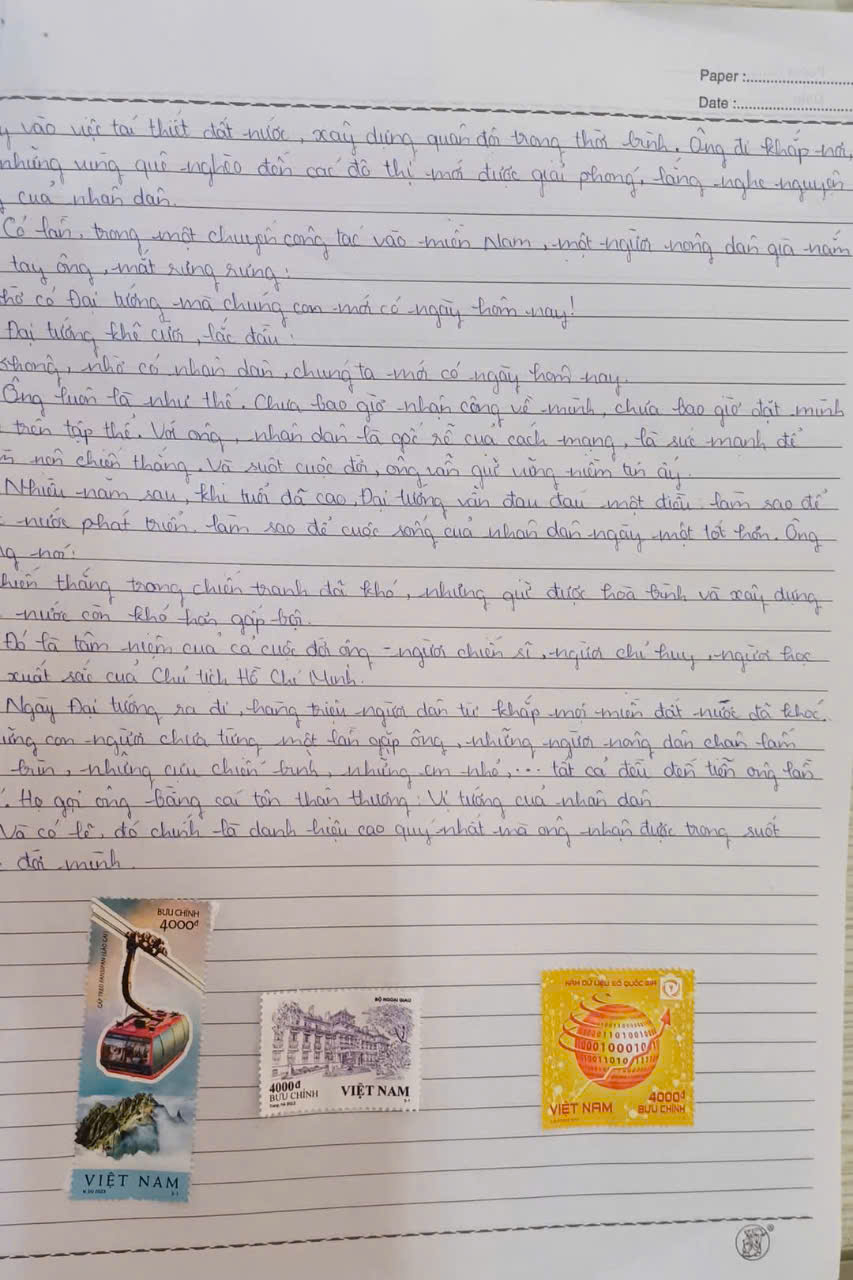 Paper :
Date :
vào việc tái thiết đất nước, xây dựng quân đội trong thời bình. Ông đi khắp nơi,
những vùng quê nghèo đến các đô thị mới được giải phóng, lắng nghe nguyện
của nhân dân.
Có lần, trong một chuyến công tác vào miền Nam, một người nông dân già nắm
tay ông, mắt rưng rưng:
có Đại tướng mà chúng con mới có ngày hôm nay!
Đại tướng khẽ cười, lắc đầu:
nhờ có nhân dân, chúng ta mới có ngày hôm nay.
Ông luôn là như thế. Chưa bao giờ nhận công về mình, chưa bao giờ đặt mình
trên tập thể. Với ông, nhân dân là gốc rễ của cách mạng, là sức mạnh để
nên chiến thắng. Và suốt cuộc đời, ông vẫn giữ vững niềm tin ấy.
Nhiều năm sau, khi tuổi đã cao, Đại tướng vẫn đau đáu một điều: làm sao để
nước phát triển, làm sao để cuộc sống của nhân dân ngày một tốt hơn. Ông
nói:
thắng trong chiến tranh đã khó, nhưng giữ được hoà bình và xây dựng
nước còn khó hơn gấp bội.
Đó là tâm niệm của cả cuộc đời ông - người chiến sĩ, người chỉ huy, người học
xuất sắc của Chủ tịch Hồ Chí Minh.
Ngày Đại tướng ra đi, hàng triệu người dân từ khắp mọi miền đất nước đã khóc.
con người chưa từng một lần gặp ông, những người nông dân chân lấm
bùn, những cựu chiến binh, những em nhỏ,... tất cả đều đến tiễn ông lần
Họ gọi ông bằng cái tên thân thương: Vị tướng của nhân dân
Và có lẽ, đó chính là danh hiệu cao quý nhất mà ông nhận được trong suốt
đời mình.
BƯU CHÍNH
4000đ
CÁP TREO FANSIPAN (LÀO CAI)
VIỆT NAM
BỘ NGOẠI GIAO
4000đ
BƯU CHÍNH
VIỆT NAM
NĂM DỮ LIỆU SỐ QUỐC GIA
VIỆT NAM
4000đ
BƯU CHÍNH